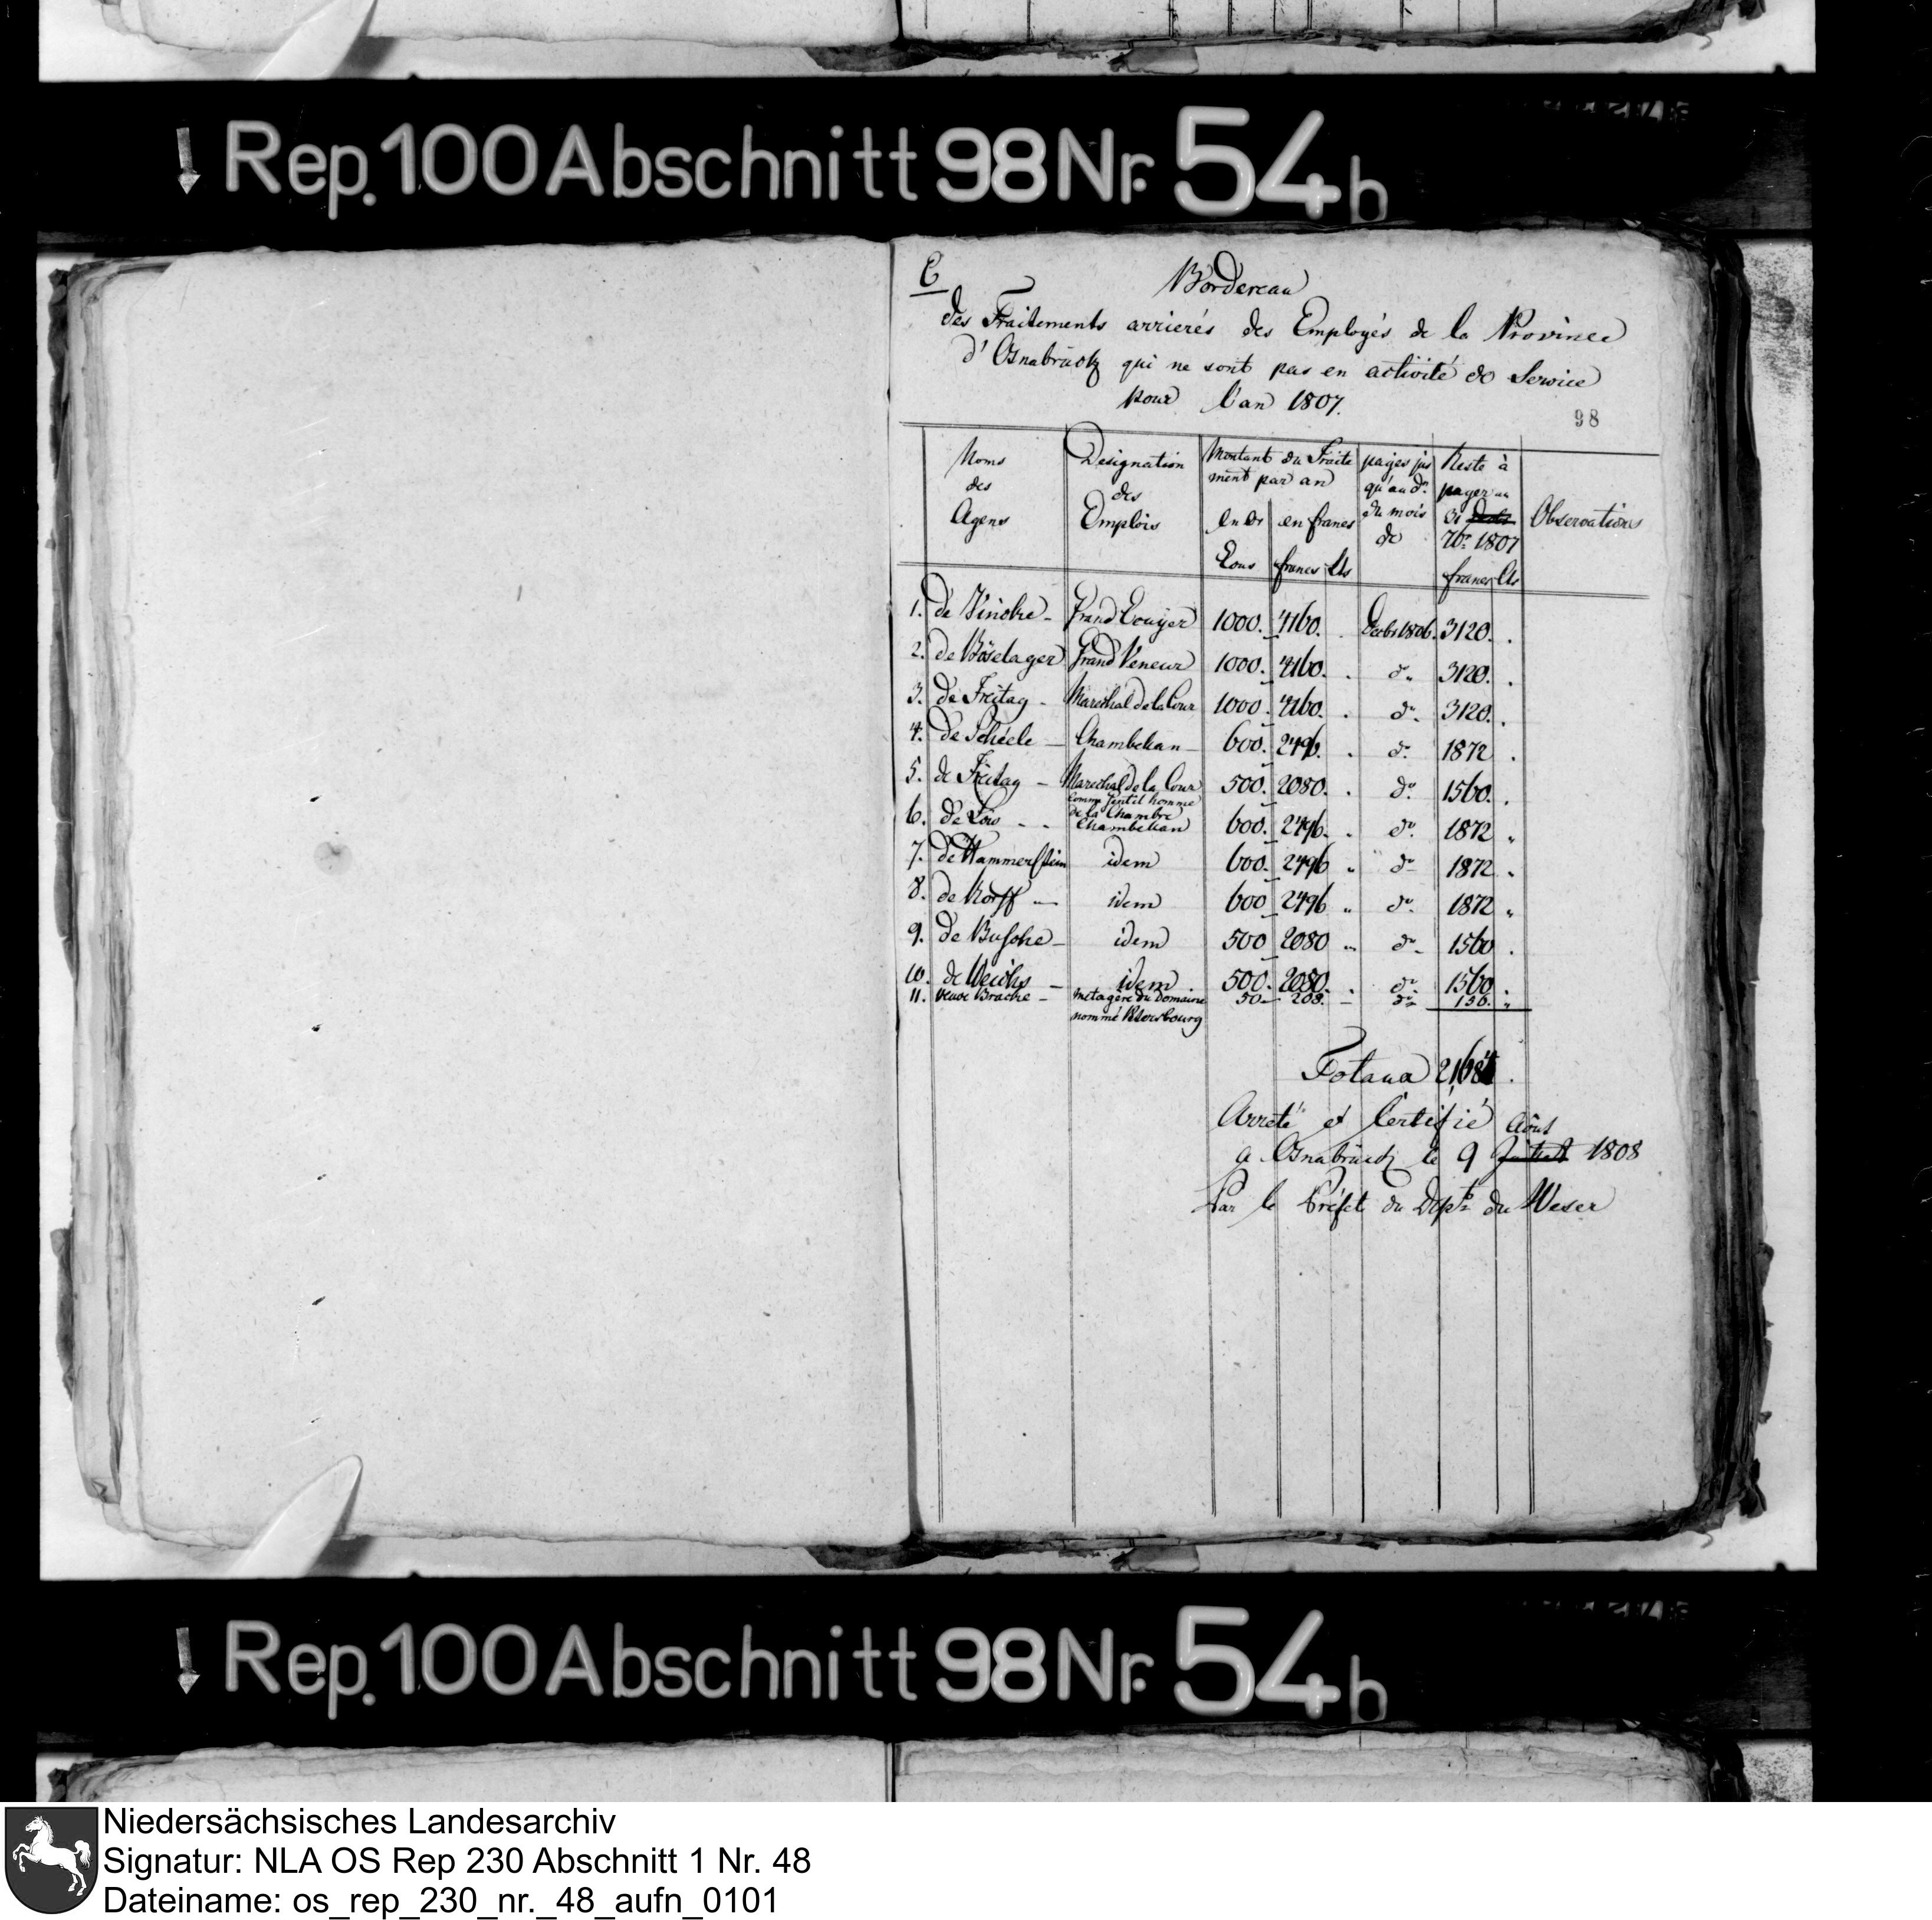 Rep. 100 Abschnitt 98 Nr. 54b
C
Bordereau
des Traitements arrierés des Employés de la Province
d'Osnabruck qui ne sont pas en activité de Service
pour l'an 1807.
98
Noms des Agens | Designation des Emplois | Montant du Traitement par an | payés jusqu'au dr du mois de | Reste à payer au 31 Xbr 1807 | Observations
en écus | en francs
Ecus | francs Cts | francs Cts
1. de Vincke - Grand Ecuyer 1000. 4160. Decbr 1806. 3120.
2. de Böselager Grand Veneur 1000. 4160. do 3120.
3. de Freitag - Marechal de la Cour 1000. 4160. do 3120.
4. de Scheele - Chambelan - 600. 2496. do 1872.
5. de Freitag - Marechal de la Cour comme Gentil homme de la Chambre 500. 2080. do 1560.
6. de Löw - - Chambelan 600. 2496. do 1872 "
7. de Hammerstein idem 600. 2496 " do 1872 "
8. de Korff - idem 600 2496 " do 1872 "
9. de Busche - idem 500 2080 " do 1560 .
10. de Weichs - idem. 500. 2080. do 1560.
11. veuve Brache - metagère du Domaine nommé Petersbourg 50 - 208. - do 156. "
Totaux 21,684 .
Arreté et Certifié
a Osnabruck le 9 Août 1808
Par le Préfet du Dept du Weser
Rep. 100 Abschnitt 98 Nr. 54b
Niedersächsisches Landesarchiv
Signatur: NLA OS Rep 230 Abschnitt 1 Nr. 48
Dateiname: os_rep_230_nr._48_aufn_0101